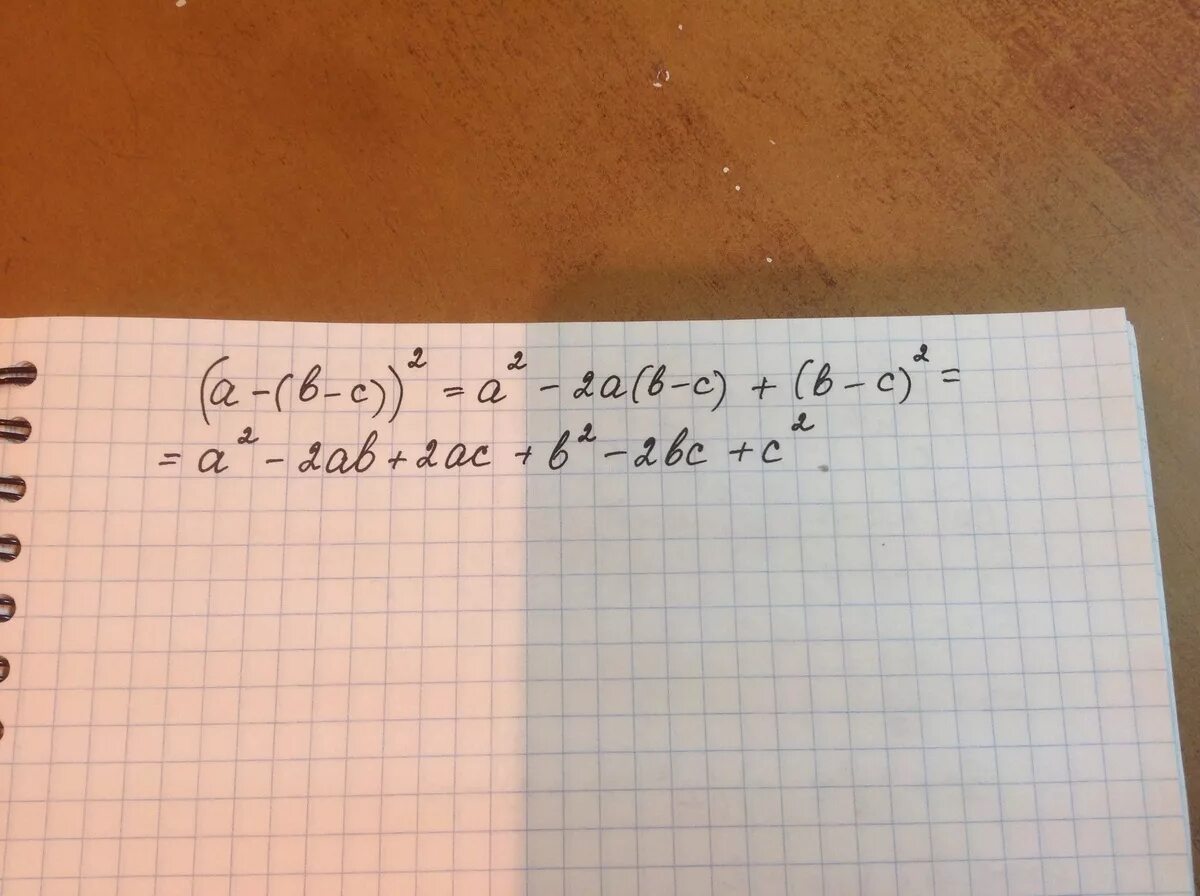 (a-(b-c))² = a² - 2a(b-c) + (b-c)² =
= a² - 2ab + 2ac + b² - 2bc + c²